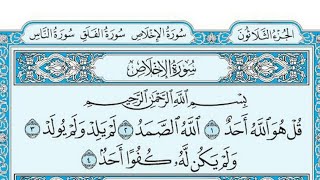 الجزء الثلاثون
سورة الإخلاص سورة الفلق سورة الناس
سورة الإخلاص
بسم الله الرحمن الرحيم
قُلْ هُوَ ٱللَّهُ أَحَدٌ ١ ٱللَّهُ ٱلصَّمَدُ ٢ لَمْ يَلِدْ وَلَمْ يُولَدْ ٣
وَلَمْ يَكُن لَّهُۥ كُفُوًا أَحَدٌۢ ٤